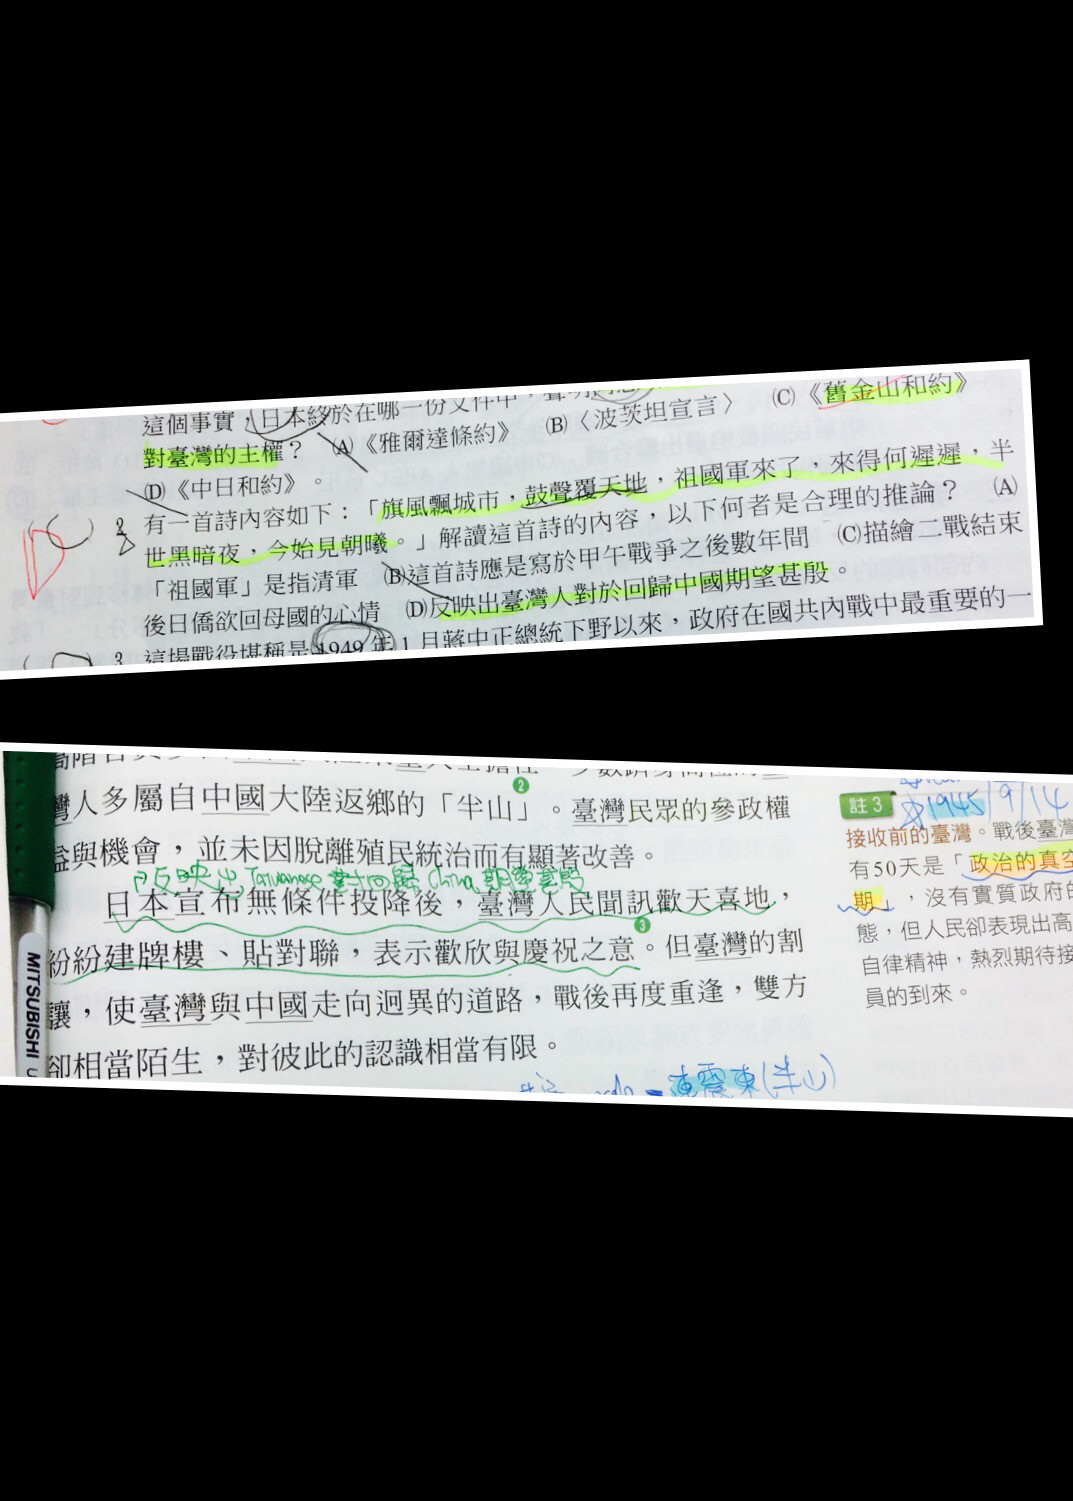 這個事實，日本終於在哪一份文件中，聲明
(C)《舊金山和約》
對臺灣的主權？ (A)《雅爾達條約》 (B)〈波茨坦宣言〉
(D)《中日和約》。
(C) 2 有一首詩內容如下：「旗風飄城市，鼓聲覆天地，祖國軍來了，來得何遲遲，半
D
世黑暗夜，今始見朝曦。」解讀這首詩的內容，以下何者是合理的推論？ (A)
「祖國軍」是指清軍 (B)這首詩應是寫於甲午戰爭之後數年間 (C)描繪二戰結束
後日僑欲回母國的心情 (D)反映出臺灣人對於回歸中國期望甚殷。
3 這場戰役堪稱是1949年1月蔣中正總統下野以來，政府在國共內戰中最重要的一
灣人多屬自中國大陸返鄉的「半山」❷。臺灣民眾的參政權
益與機會，並未因脫離殖民統治而有顯著改善。
反映出Taiwanese對回歸China期望甚殷
日本宣布無條件投降後，臺灣人民聞訊歡天喜地，
紛紛建牌樓、貼對聯，表示歡欣與慶祝之意❸。但臺灣的割
讓，使臺灣與中國走向迥異的道路，戰後再度重逢，雙方
卻相當陌生，對彼此的認識相當有限。
連震東(半山)
MITSUBISHI
註3
1945/9/14
接收前的臺灣。戰後臺灣
有50天是「政治的真空
期」，沒有實質政府的
態，但人民卻表現出高
自律精神，熱烈期待接
員的到來。